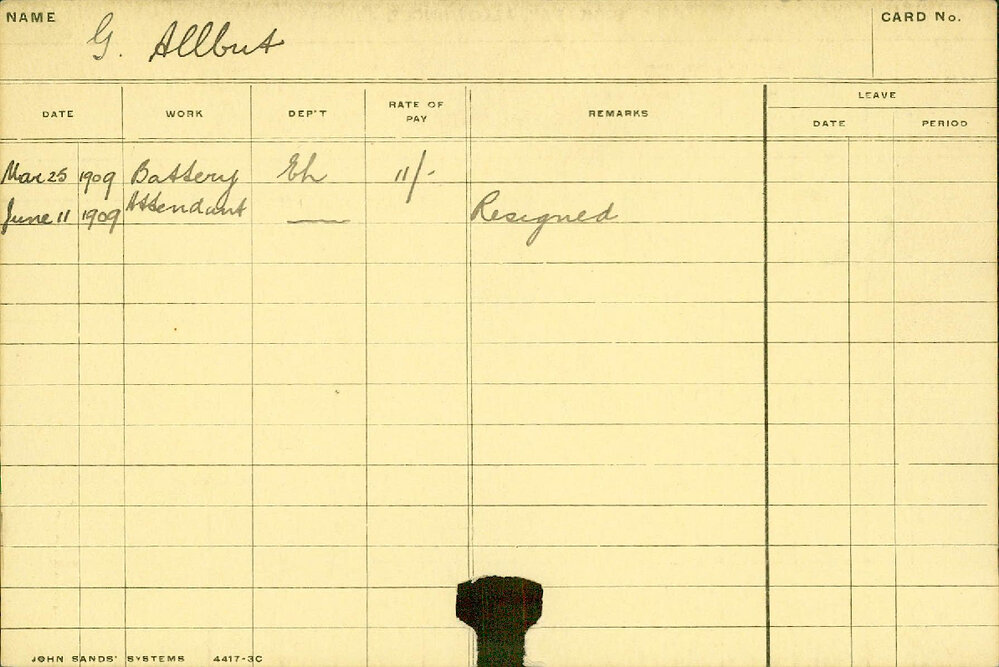 NAME G. Allbut CARD No.
LEAVE
DATE WORK DEP'T RATE OF PAY REMARKS DATE PERIOD
Mar 25 1909 Battery Eh 11/-
June 11 1909 Attendant — Resigned
JOHN SANDS' SYSTEMS 4417-3C